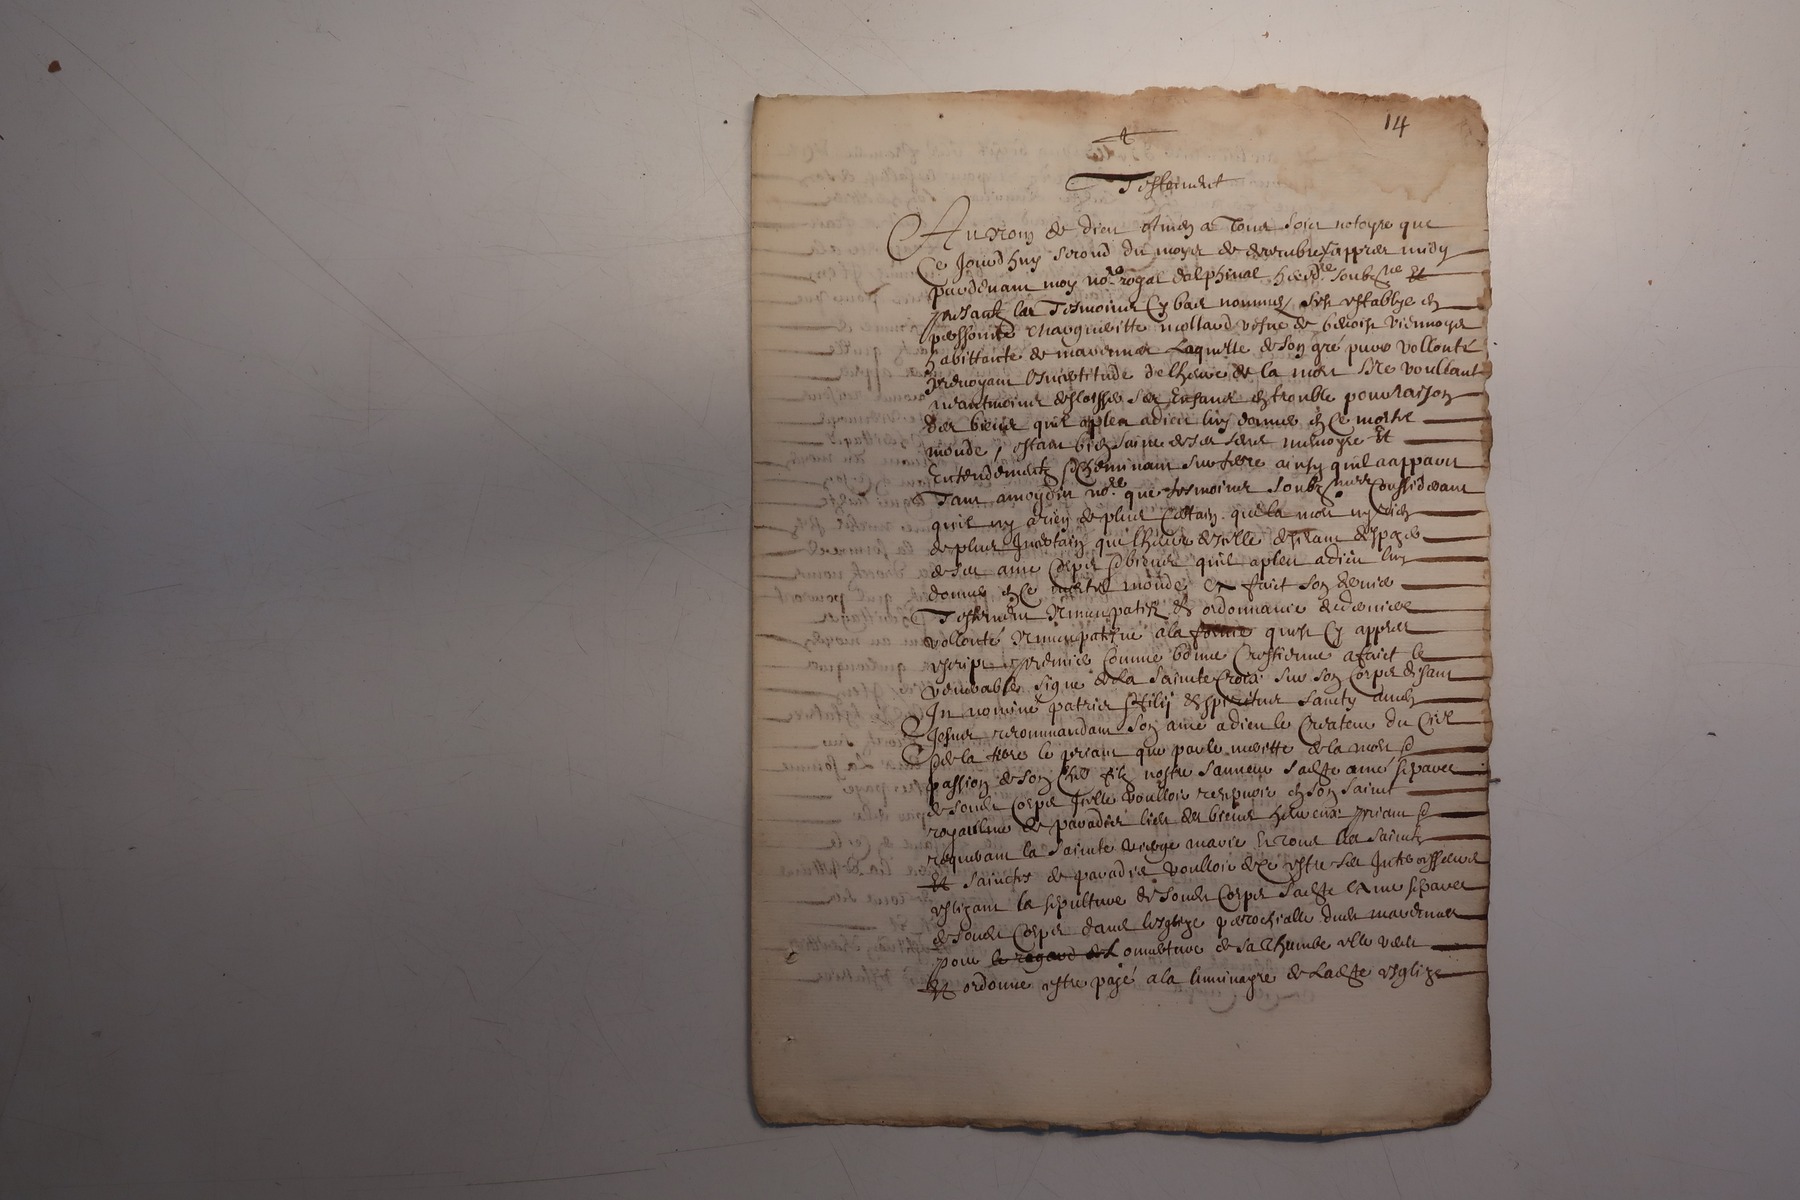 14
Testament
Au nom de dieu Amen a Tous soict notoyre que
Ce Jourdhuy second du moys de decembre appres midy
pardevant moy no.re royal dalphinal hered.re soubz.ne et
presantz les Tesmoins Cy bas nommes, sest establye en
personne Margueritte mollard vefve de benoist
habittante de Laquelle de son gré pure vollonté
prevoyant lincertitude de lheure de la mort Ne voullant
neantmoings delaisser ses Enfans en trouble pour raison
des biens quil a pleu a dieu luy donner en Ce mortel
monde, estant bien saine de ses sens memoyre et
Entendement, Cheminant sur terre ainsy quil a apparu
Tant a moydit no.re que tesmoins soubz.nes Considerant
quil ny a rien de plus Certain que la mort ny rien
de plus Incertain que lheure dicelle desirant disposer
de ses ame Corps et biens quil a pleu a dieu luy
donner en Ce mortel monde, a faict son dernier
Testement Nuncupatif et ordonnance de derniere
vollonté Nuncupative a la forme quest Cy appres
escript, premier Comme bonne Crestienne a faict le
venerable signe de la Sainte Croix sur son Corps disant
In nomine patris et filij et spiritus sancty amen
Jesus recommandant son ame a dieu le Createur du Ciel
et de la terre le priant que par le meritte de la mort et
passion de son Cher filz nostre sauveur sadite ame separee
de sondit Corps Icelle voulloir recepvoir en son saint
royaulme de paradis lieu des biens heureux priant et
requerant la Sainte vierge marie Et tous les Saintz
et Sainctes de paradis voulloir de Ce estre ses Intercesseurs
eslizant la sepulture de sondit Corps sadite ame separee
de sondit Corps dans lesglize parrochialle dudit
pour le regard de Louverture de sa Thumbe elle veut
et ordonne estre payé a la luminayre de Ladite esglize